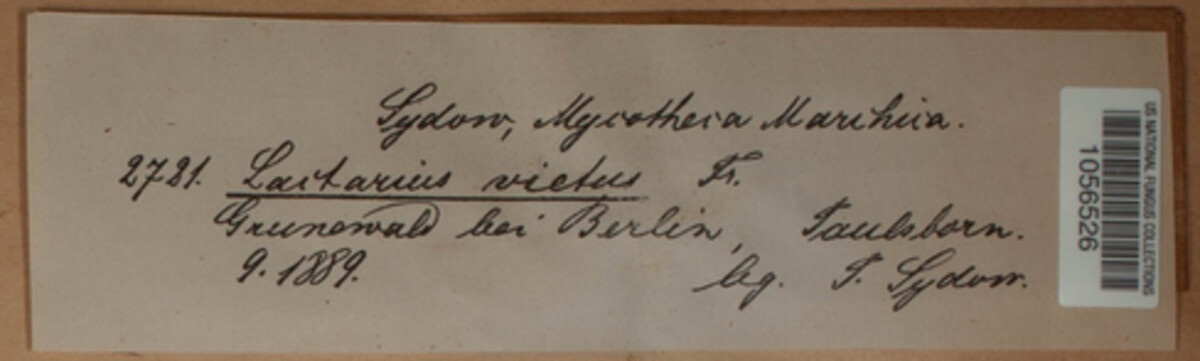 Sydow, Mycotheca Marchica.
2721. Lactarius vietus Fr.
Grunewald bei Berlin, Paulsborn.
9. 1889.
leg. P. Sydow.
US NATIONAL FUNGUS COLLECTIONS
1056526